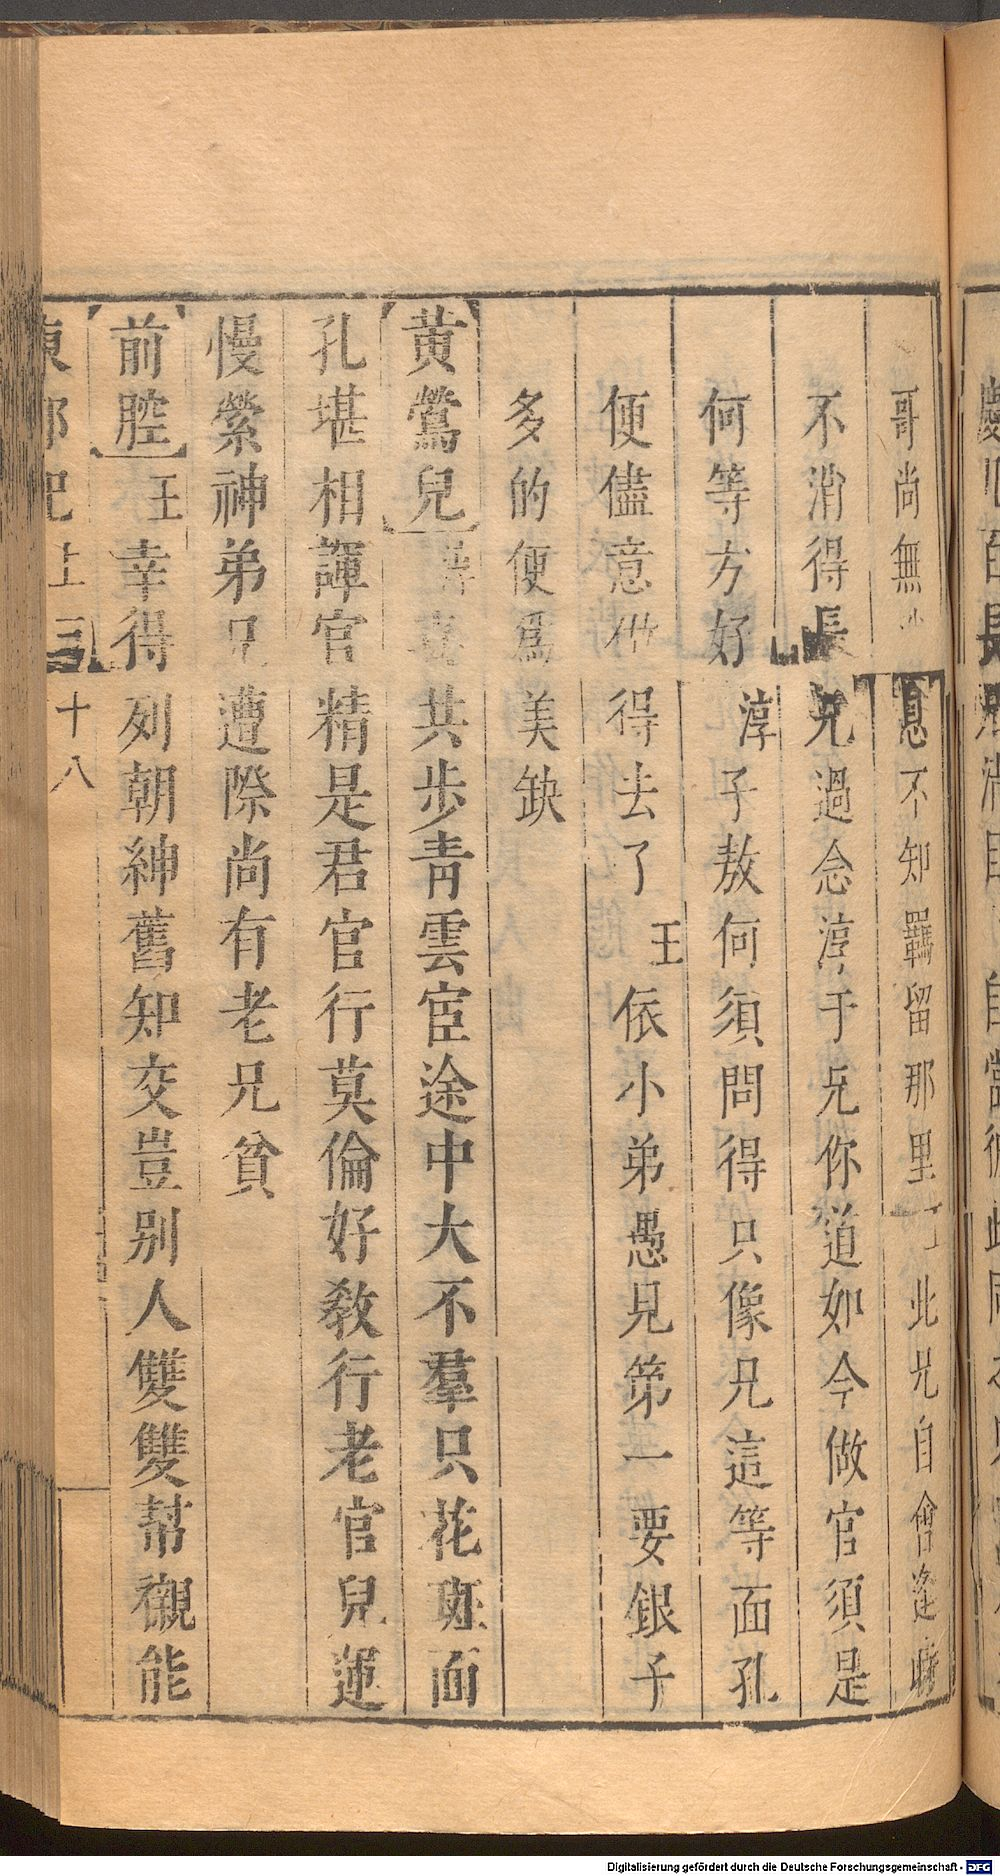 哥尚無 息不知羈留那里 此兄自會逢
不消得長兄過念淳于兄你道如今做官須是
何等方好 淳子敖何須問得只像兄這等面孔
便儘意 得去了 王依小弟愚見第一要銀子
多的便爲美缺
黄鶯兒 共步青雲宦途中大不羣只花斑面
孔堪相諢官精是君官行莫倫好教行老官兒運
慢縈神弟兄遭際尚有老兄貧
前腔 王幸得列朝紳舊知交豈别人雙雙幇襯能
東郭記上 十八
Digitalisierung gefördert durch die Deutsche Forschungsgemeinschaft - DFG